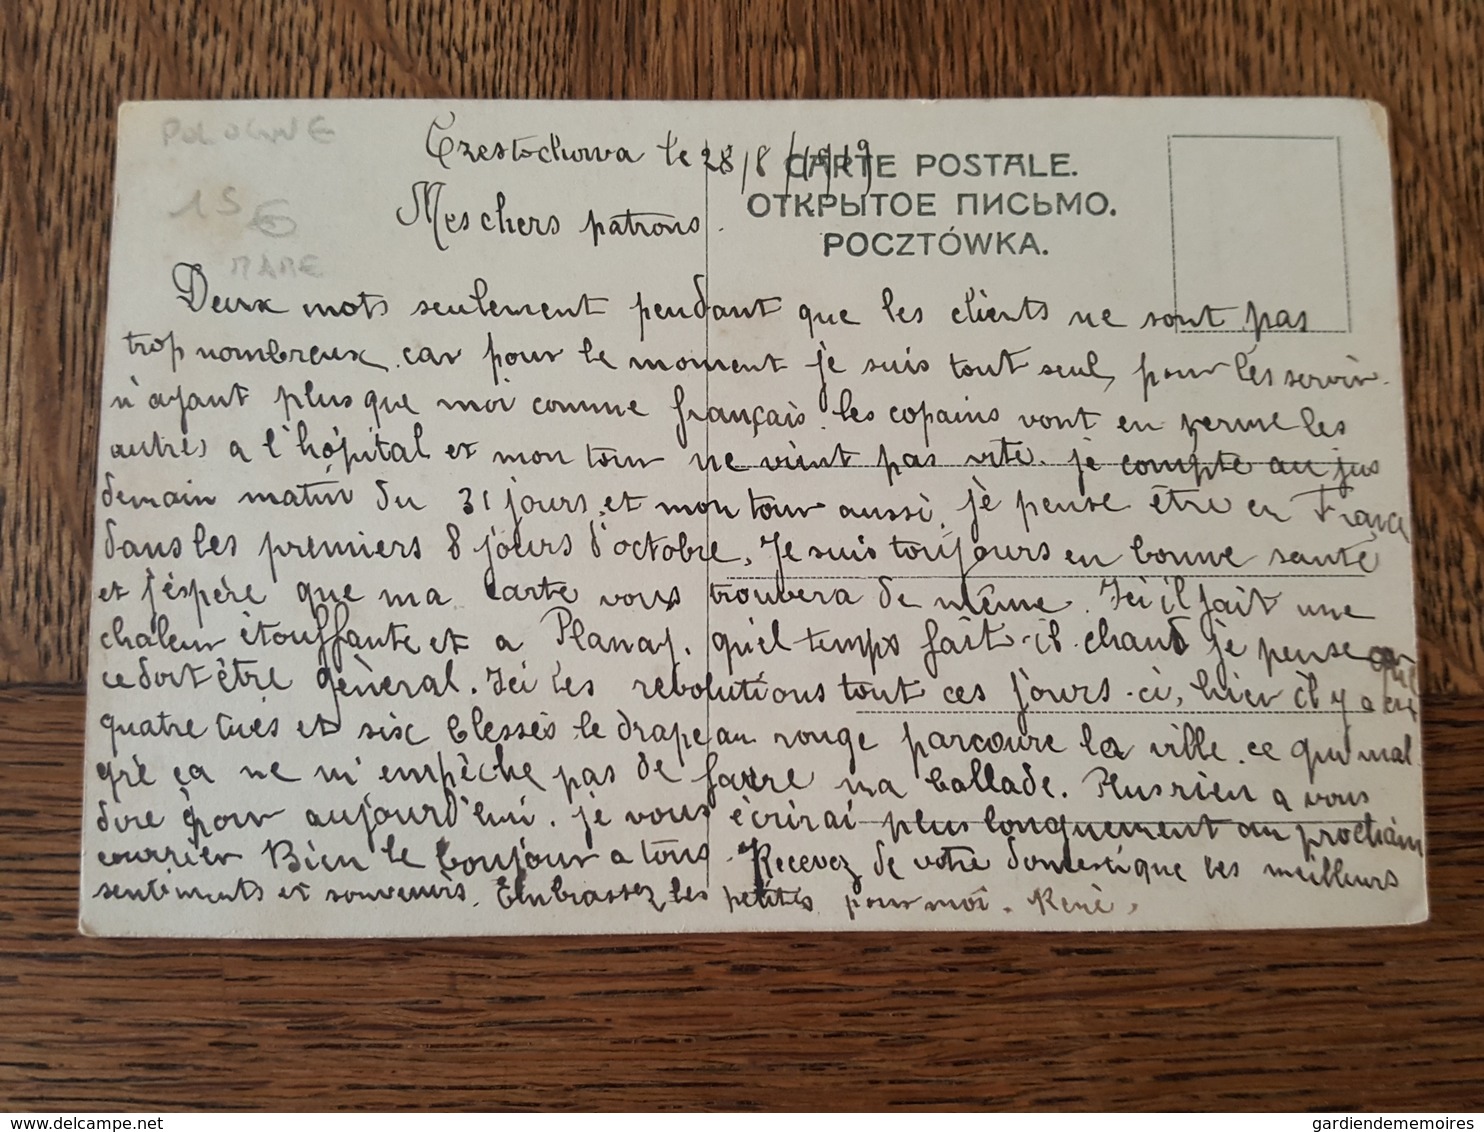 POLOGNE
15 €
RARE
CARTE POSTALE.
ОТКРЫТОЕ ПИСЬМО.
POCZTÓWKA.
Czestochowa le 28/8/1919
Meschers patrons.
Deux mots seulement pendant que les clients ne sont pas
trop nombreux car pour le moment je suis tout seul, pour les servir.
n'ayant plus que moi comme français. les copains vont en perme les
autres a l'hôpital et mon tour ne vient pas vite. je compte au jus
demain matin du 31 jours, et mon tour aussi, je pense être en France
dans les premiers 8 jours d'octobre. Je suis toujours en bonne santé
et j'éspère que ma carte vous trouvera de même. Ici il fait une
chaleur étouffante et a Planay. quel temps fait-il. chaud je pense que
ce doit être général. Ici les revolutions tout ces jours-ci, hier il y a eu
quatre tués et six blessés le drapeau rouge parcoure la ville. ce qui mal
gré ça ne m'empêche pas de faire ma ballade. Plus rien a vous
dire pour aujourd'hui. je vous écrirai plus longuement au prochain
courrier Bien le bonjour a tous. Recevez de votre domestique les meilleurs
sentiments et souvenirs. Embrassez les petites pour moi. René.
www.delcampe.net
gardiendememoires